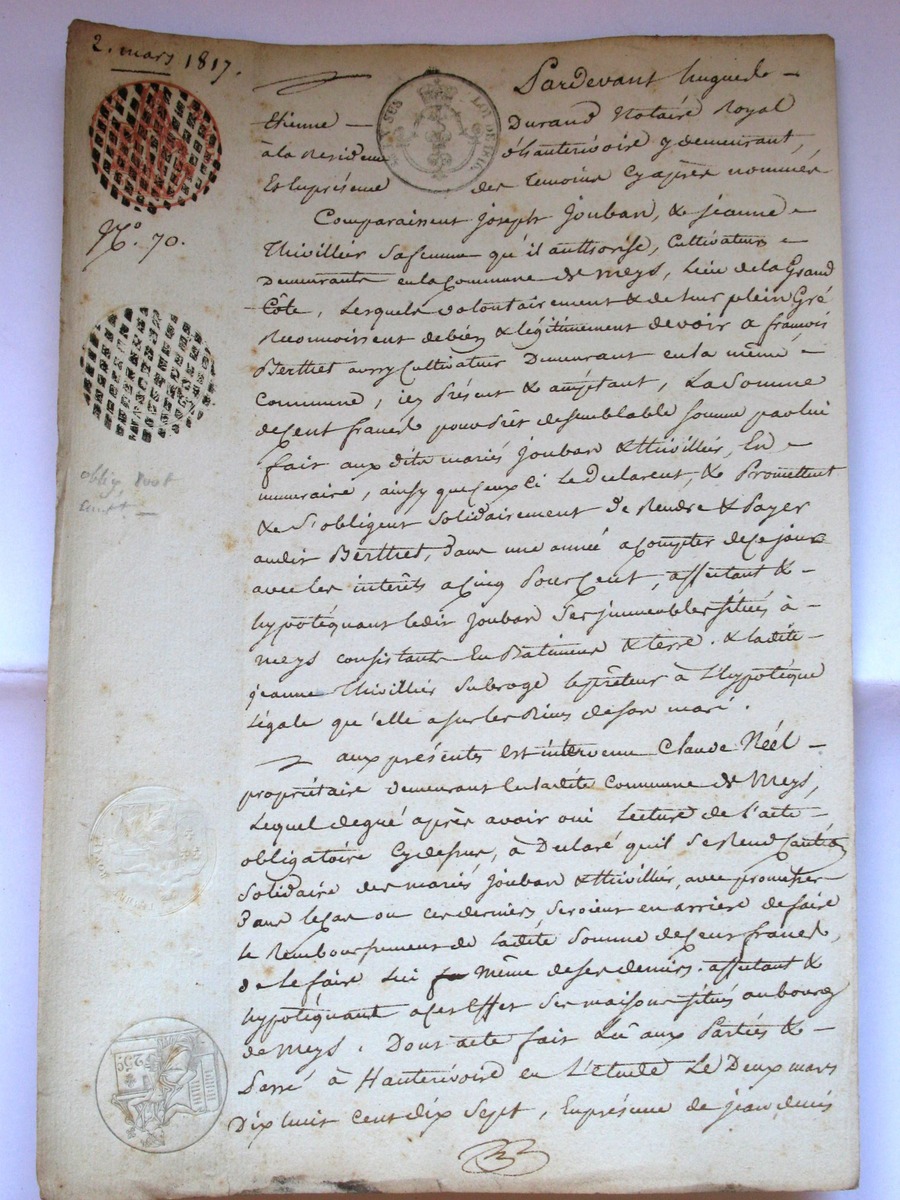 2. mars 1817.
Pardevant hugues
Etienne Durand Notaire Royal
à la Résidence d'hauterivoire y demeurant,
Et En présence des temoins Cy après nommés
N.º 70.
Comparaissent joseph jouban, & jeanne
Thivillier Safemme qu'il authorise, Cultivateurs
Demeurants en la Commune de Meys, Lieu de la Grand
Côte, Lesquels volontairement & de leur plein Gré
Reconnoissent de bien & légitimement devoir a francois
Berthet aussy Cultivateur Demeurant en la même
Commune, icy Présent & acceptant, La Somme
de Cent francs pour Prêt de semblable somme par lui
fait aux dits mariés jouban & thivillier, En
numeraire, ainsy que Ceux Ci Le declarent, & Promettent
& S'obligent Solidairement de Rendre & Payer
audit Berthet, dans une année a Compter de Ce jour
avec les interêts a Cinq Pour Cent, affectant &
hypotéquant ledit jouban Ses immeubles situés à
Meys Consistants En Batiments & terre. & ladite
jeanne Thivillier Subroge le prêteur à L'hypotéque
Légale qu'elle a sur les Biens de son mari.
aux présentes Est intervenu Claude Néel
propriétaire demeurant En ladite Commune de Meys,
Lequel de gré après avoir oui Lecture de L'acte
obligatoire Cy dessus, à Declaré qu'il Se Rend Caution
Solidaire des mariés jouban & thivillier, avec promesse
Dans le Cas ou Ces derniers Seroient en arriere de faire
Le Remboursement de Ladite Somme de Cent francs,
de le faire Lui Même de ses deniers. affectant &
hypotéquant a Cet Effet Ses maisons situés au bourg
de Meys. Dont acte fait Lû aux Parties &
Passé à Hauterivoire en L'etude Le Deux mars
Dix huit Cent dix Sept, En présence de jean denis